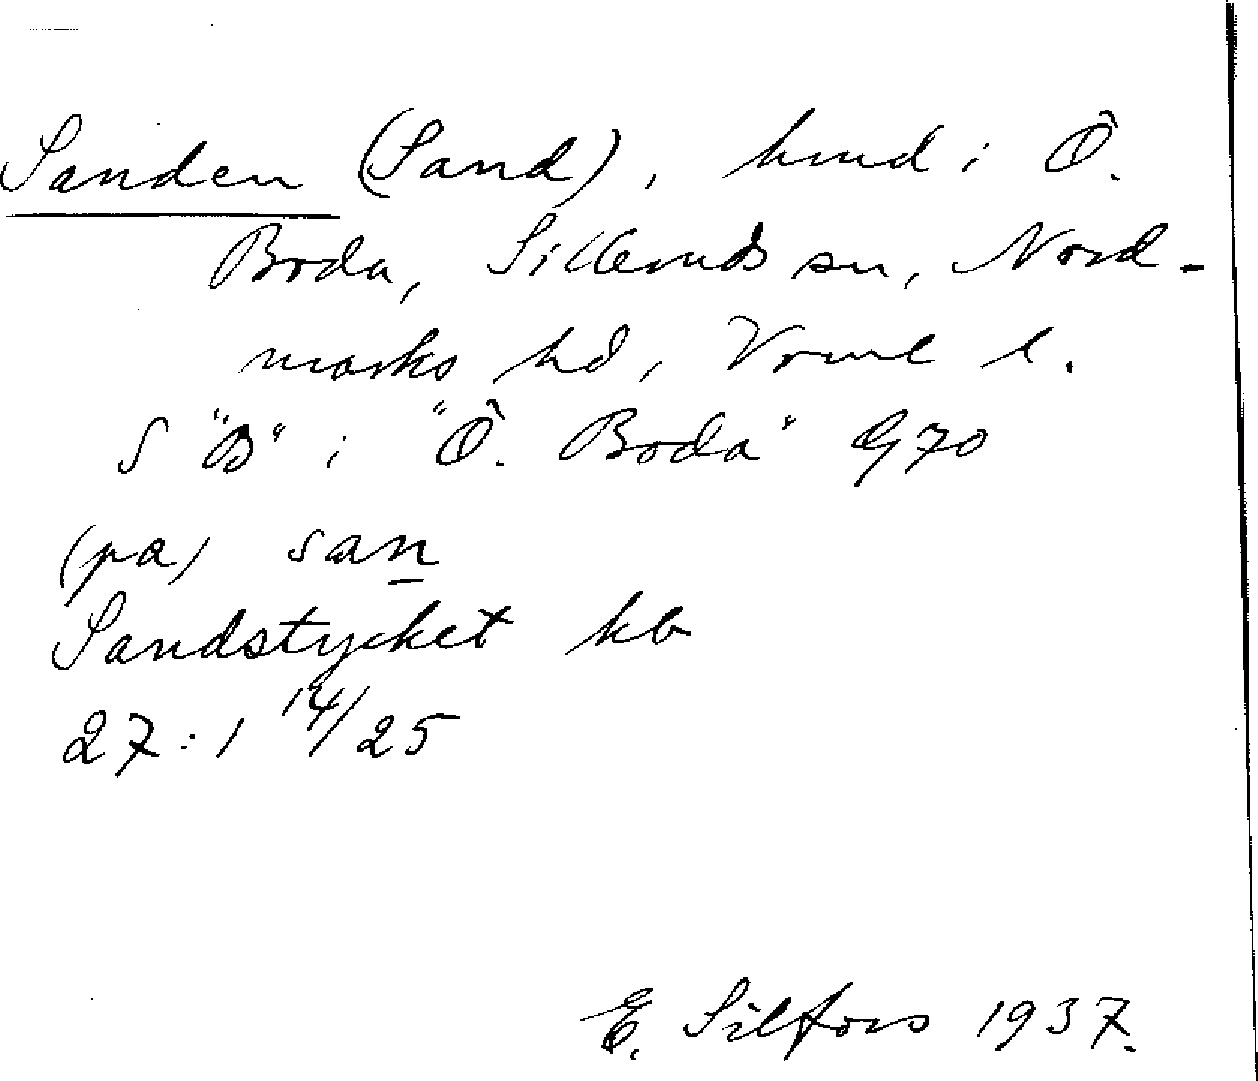 Sanden (Sand), hmd i Ö.
Boda, Silleruds sn, Nord-
marks hd, Vrml l.
S "B" i "Ö. Boda" G70
(pa) san
Sandstycket kb
27:1 14/25
E. Silfors 1937.